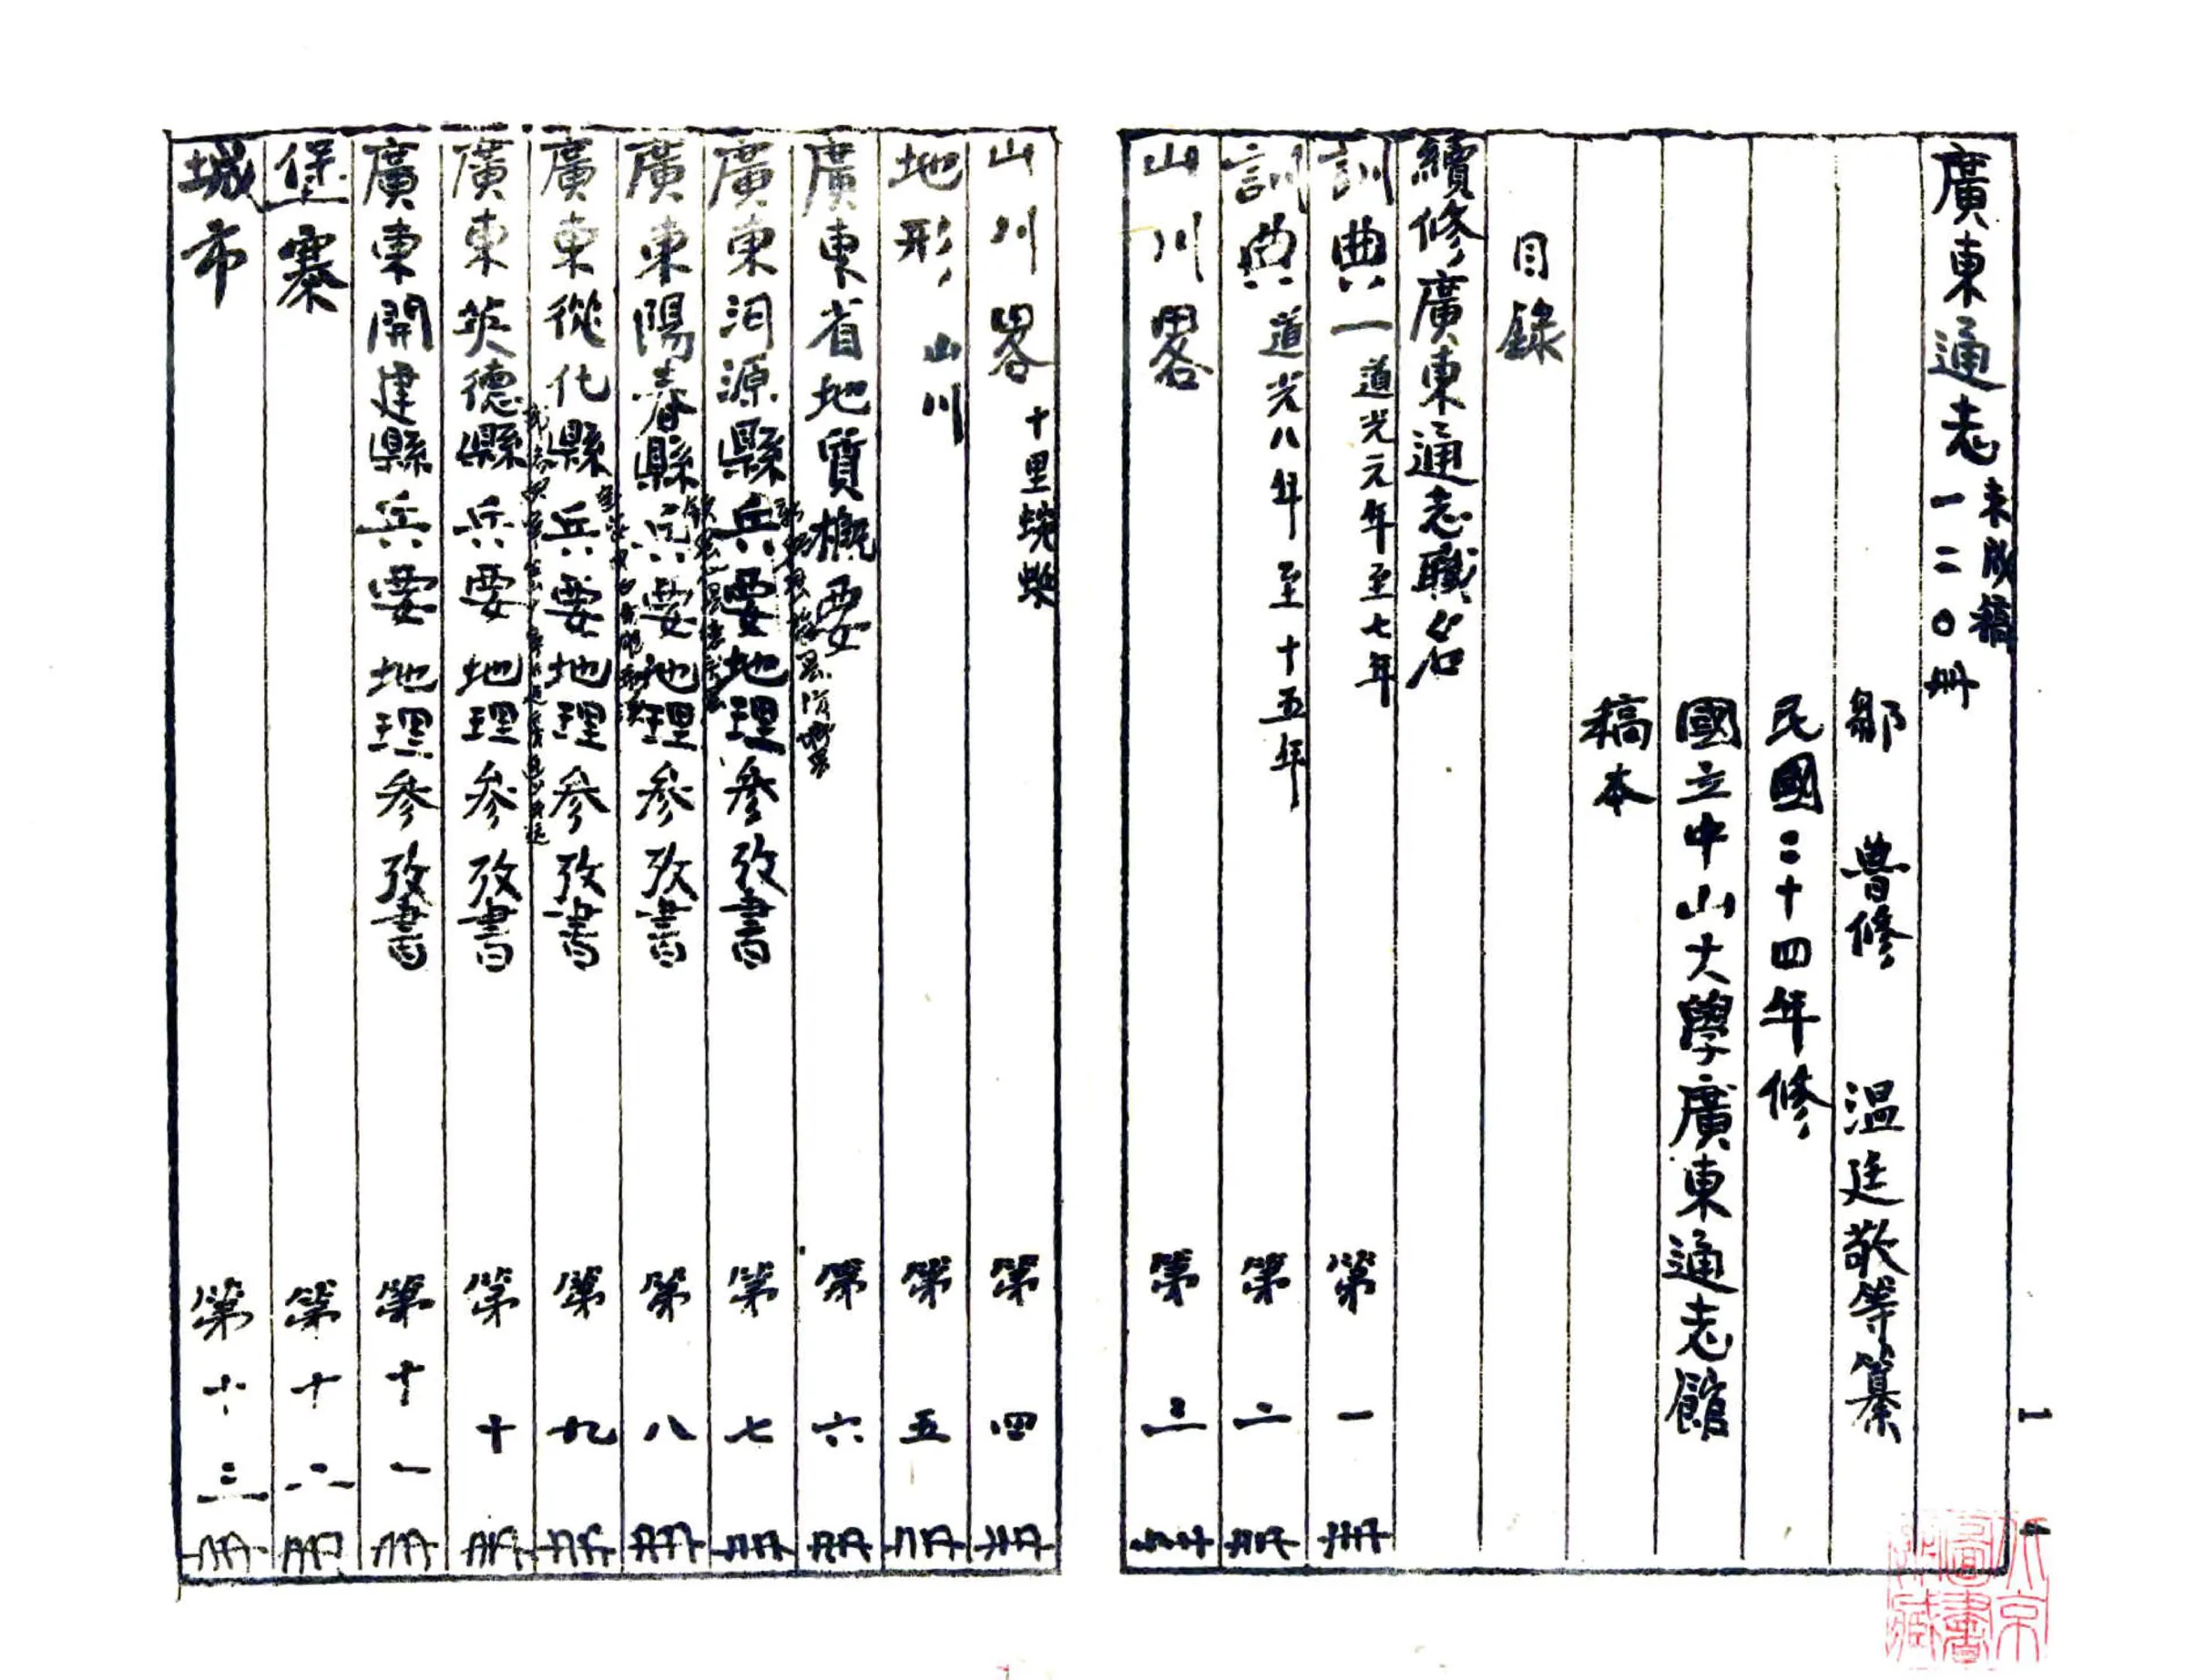 廣東通志 未成稿 一二〇冊
鄒魯修 溫廷敬等纂
民國二十四年修
國立中山大學廣東通志館
稿本
目錄
續修廣東通志職名
訓典一 道光元年至七年 第一冊
訓典 道光八年至十五年 第二冊
山川畧 第三冊
山川畧 十里 第四冊
地形 山川 第五冊
廣東省地質概要 第六冊
廣東河源縣兵要地理參攷書 第七冊
廣東陽春縣兵要地理參攷書 第八冊
廣東從化縣兵要地理參攷書 第九冊
廣東英德縣兵要地理參攷書 第十冊
廣東開建縣兵要地理參攷書 第十一冊
堡寨 第十二冊
城市 第十三冊
1